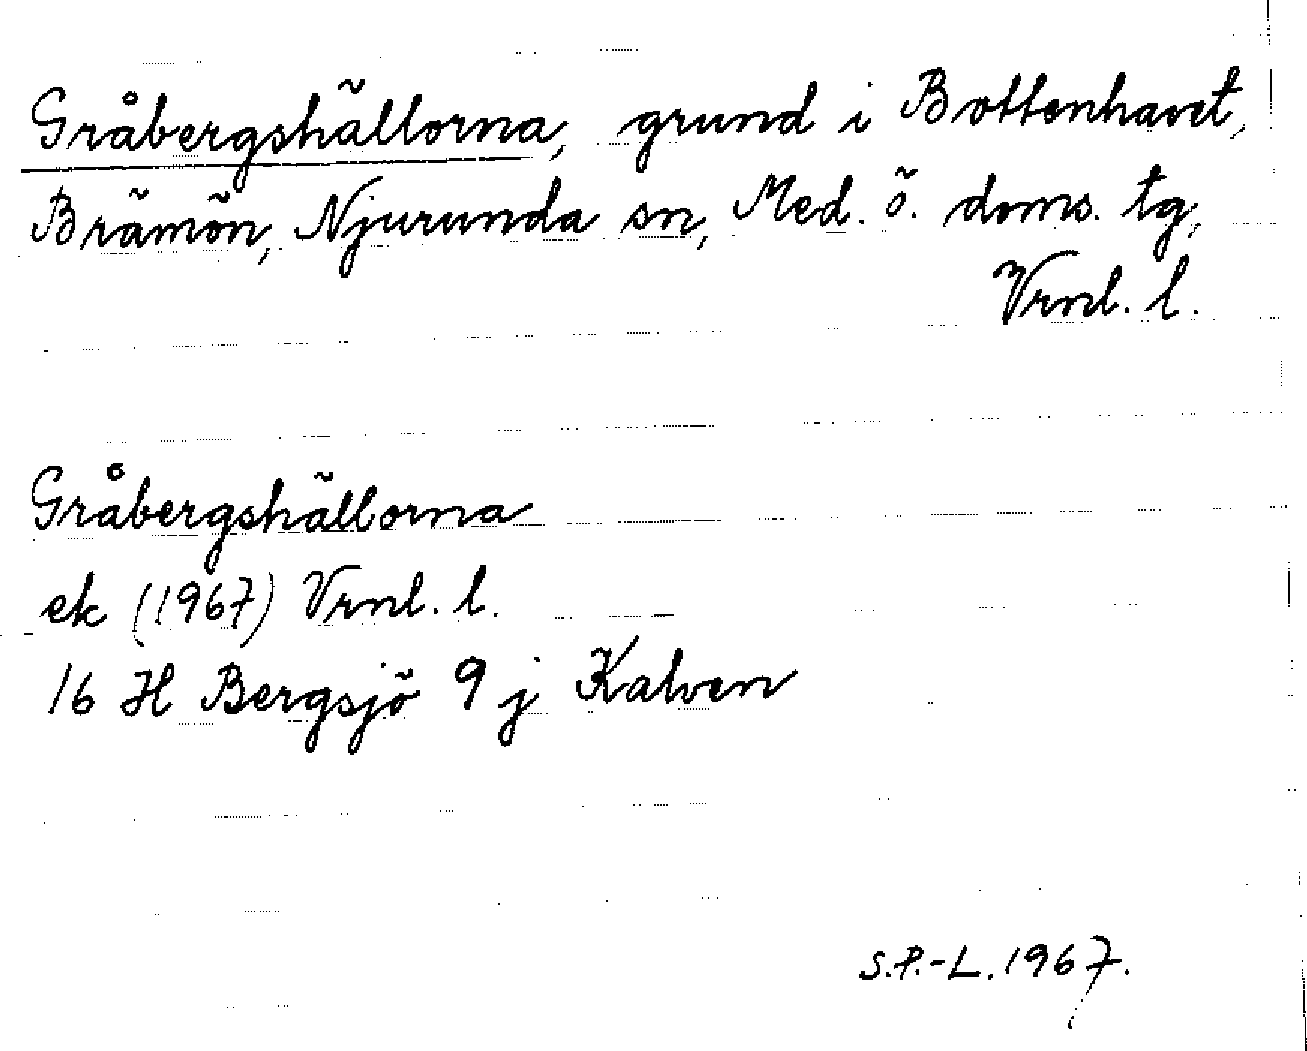 Gråbergshällorna, grund i Bottenhavet,
Brämön, Njurunda sn, Med. ö. doms. tg,
Vrnl. l.
Gråbergshällorna
ek (1967) Vrnl. l.
16 H Bergsjö 9 j Kalven
S.P.-L. 1967.